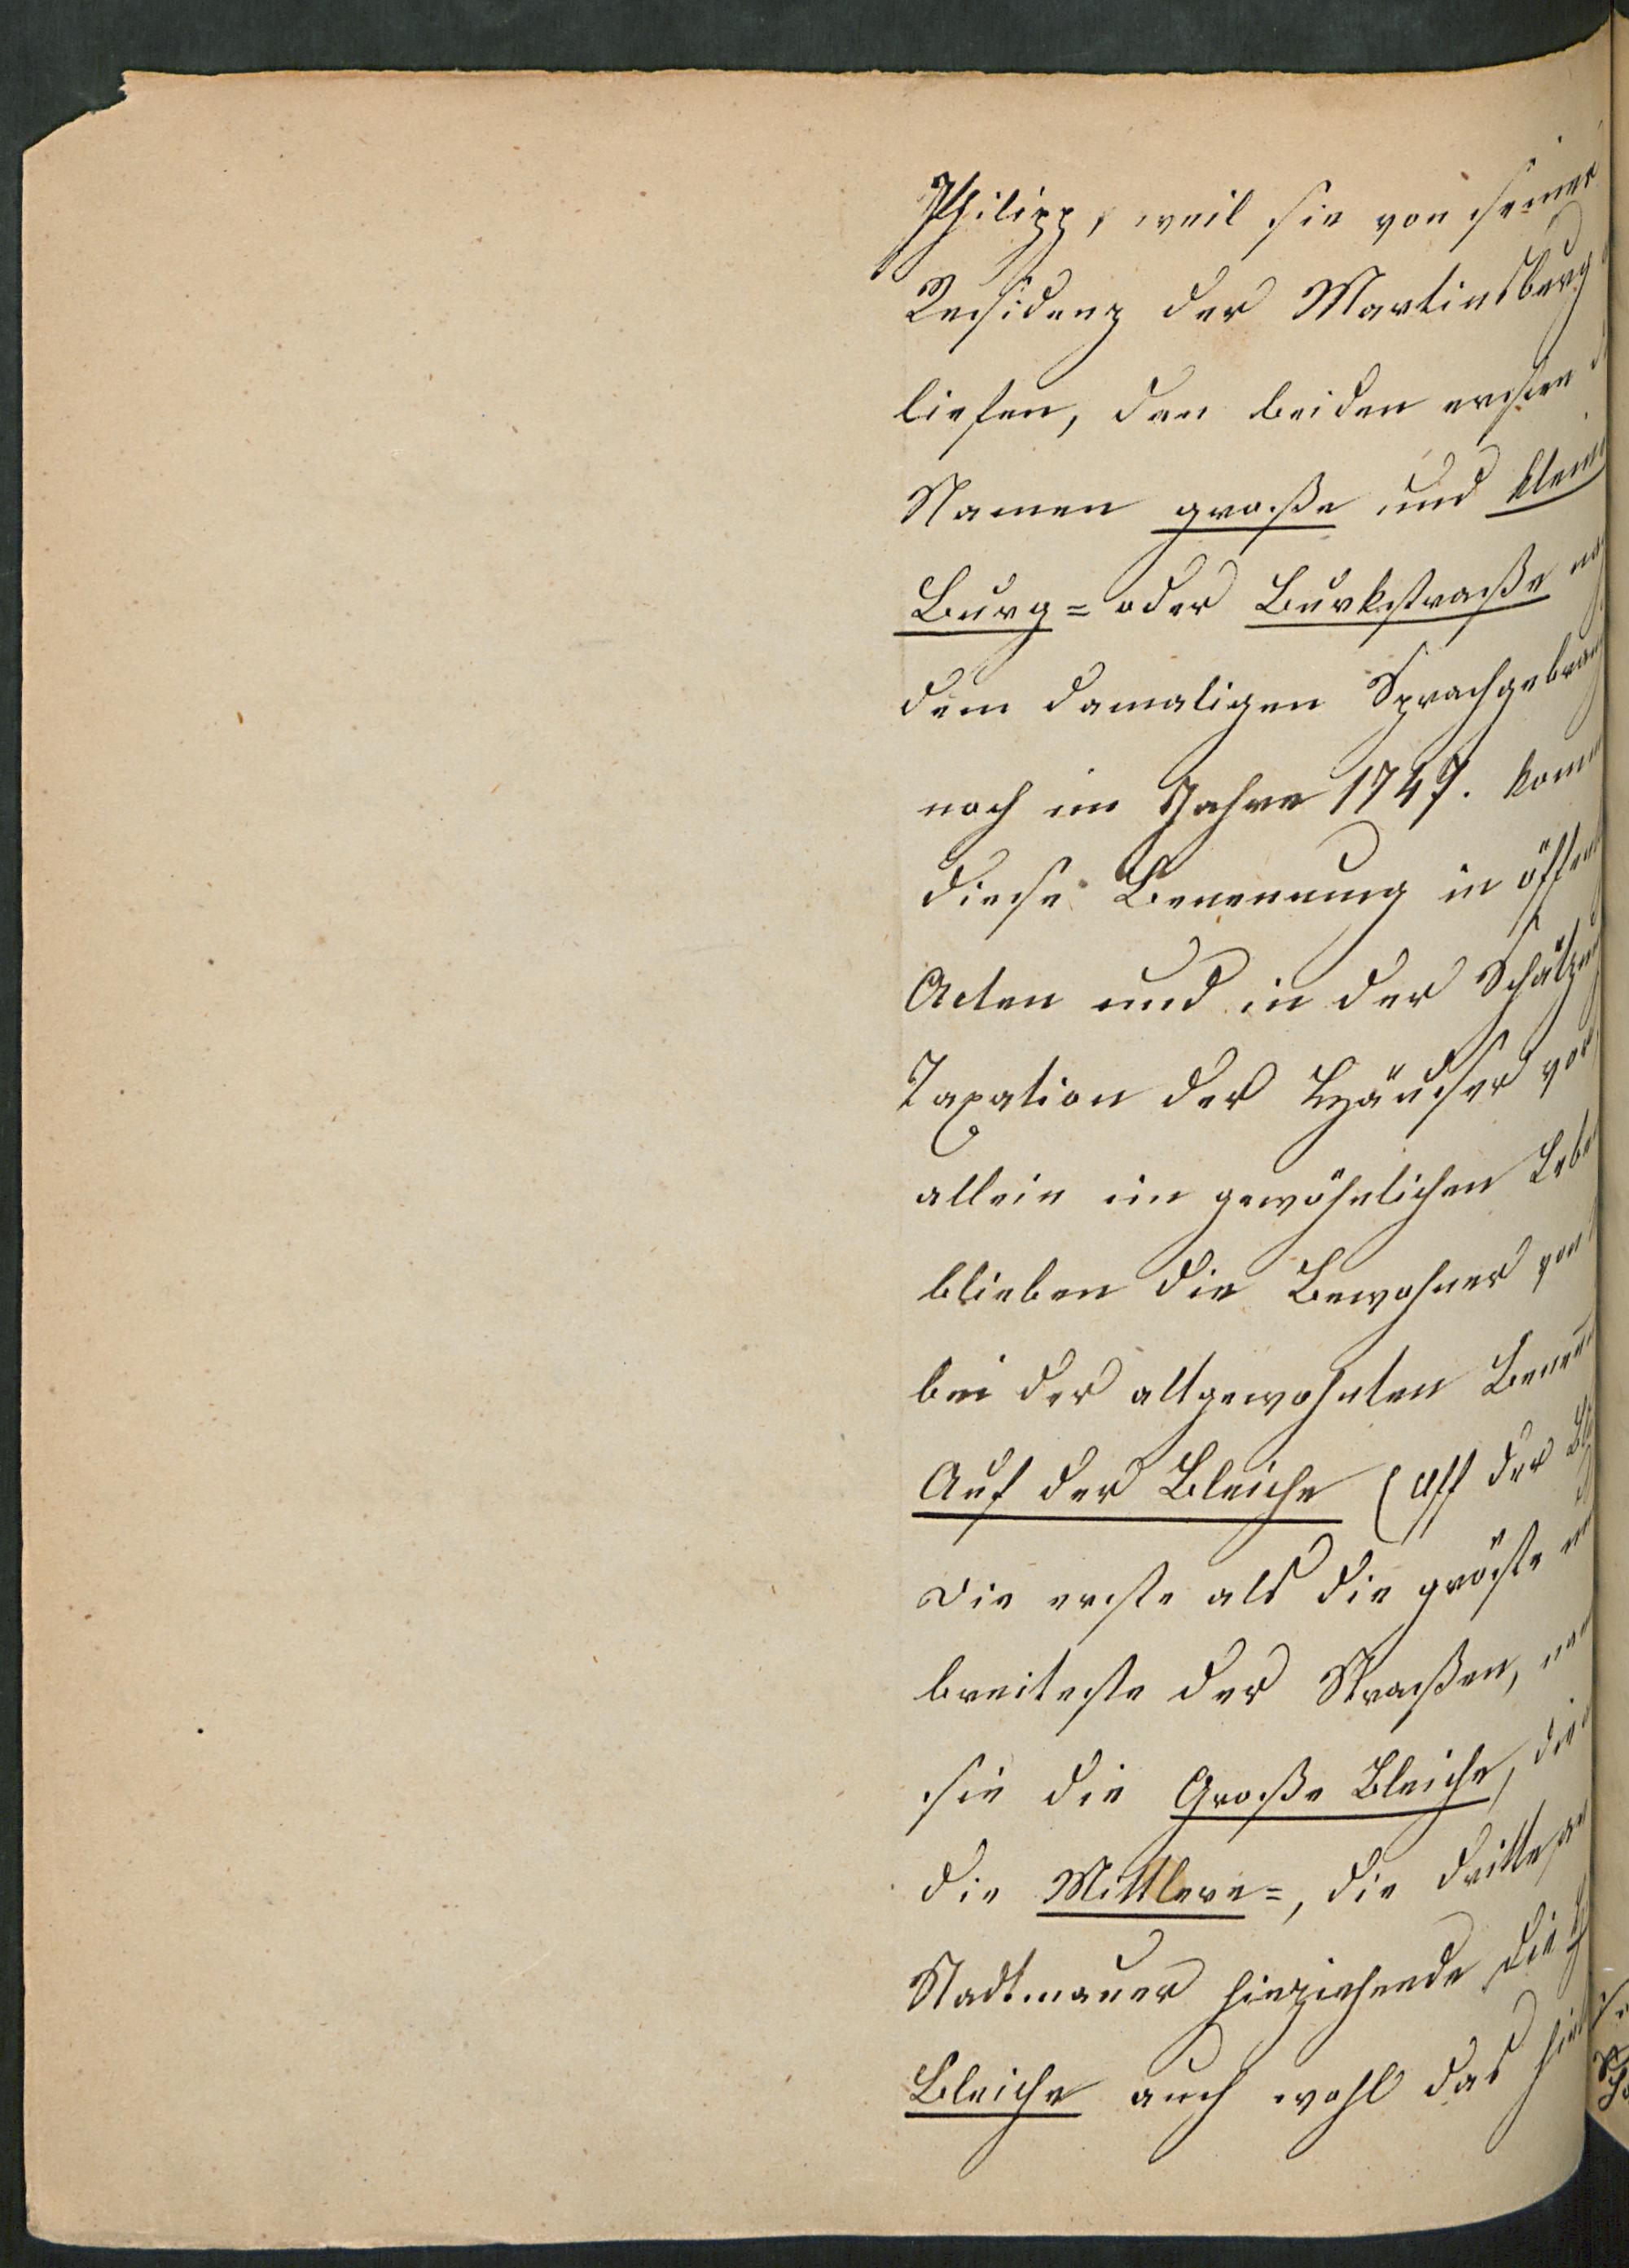 Philipp, weil sie von seiner
Residenz der Martinsburg
liefen, den beiden ersten
Namen große und klein
Burg= oder Burkstraße
dem damaligen Sprachgebrau
noch im Jahre 1747. kom
diese Benennung in öffen
Acten und in der Schätzu
Taxation der Häuser vor
allein im gewöhnlichen Lebe
blieben die Bewohner von
bei der altgewohnten Benen
Auf der Bleiche (Uff der Bl
Die erste als die gröste
breiteste der Straßen,
sie die Große Bleiche, die
die Mittlere=, die dritte
Stadtmauer hinziehende die
Bleiche auch wohl das